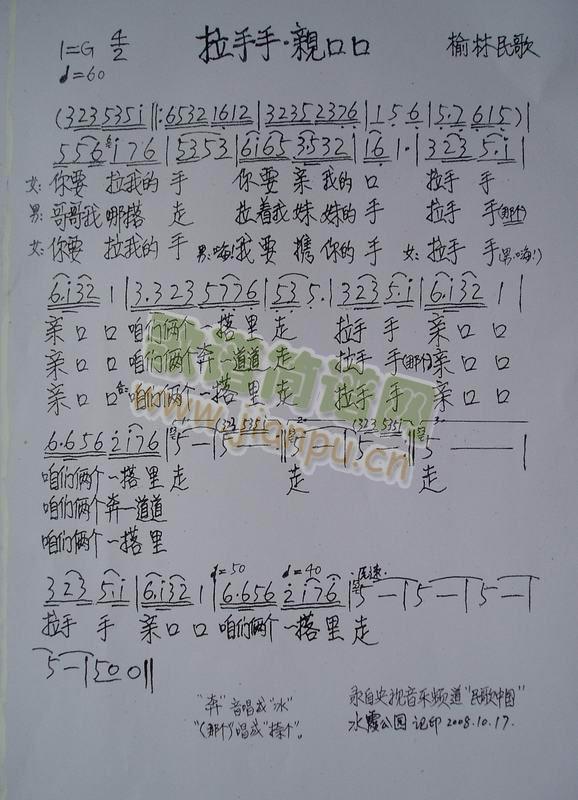 拉手手·親口口
榆林民歌
1=G 4/2
♩=60
(323535i‖:65321612|32352376|1 5 6|5.7 615)|
556i76|5353|6i653532|16 1·|323 5.i|
女:你要 拉我的 手 你要 亲 我的 口 拉手 手
男:哥哥我 哪搭 走 拉着我 妹妹的 手 拉手 手(那个)
女:你要 拉我的 手 男:(嗨!)我要 携 你的 手 女:拉手 手(男:嗨!)
6.i32 1|3.323 5776|53 5.|323 5.i|6.i32 1|
亲口 口 咱们俩个 一搭里 走 拉手 手 亲口 口
亲口 口 咱们俩个 奔一道道 走 拉手 手(那个)亲口 口
亲口 口 合:咱们俩个 一搭里 走 拉手 手 亲口 口
6.656 2i76|5—|5—:‖5—|5—:‖5—|
(323 535i (323 535i
咱们俩个 一搭里 走 走 走
咱们俩个 奔一道道
咱们俩个 一搭里
♩=50 ♩=40 原速
323 5.i|6.i32 1|6.656 2i76|5—|5—|5—|
拉手 手 亲口 口 咱们俩个 一搭里 走
5—|50 0‖
"奔"音唱成"水"
"(那个)"唱成"捺个"。
录自央视音乐频道"民歌中国"
水霞公园 记印 2008.10.17.
歌谱简谱网
www.jianpu.cn